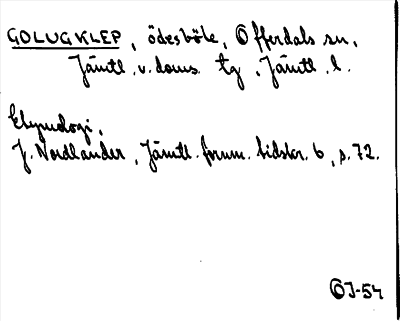 GOLUGKLEP, ödesböle, Offerdals sn,
Jämtl. v. doms. tg, Jämtl. l.
Etymologi,
J. Nordlander, Jämtl. fornm. tidskr. 6, s. 72.
ÖJ-54